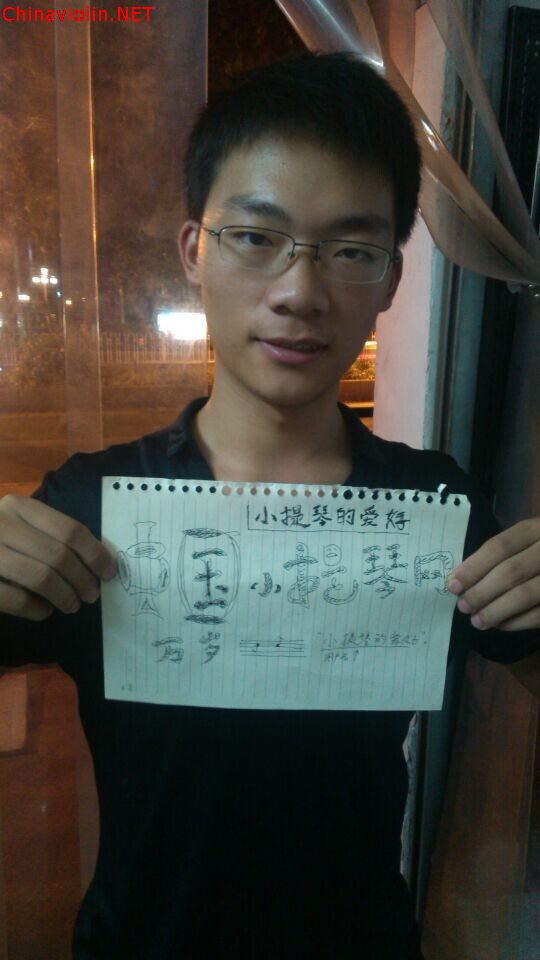 Chinaviolin.NET
小提琴的爱好
中国小提琴网
万岁
"小提琴的爱好"